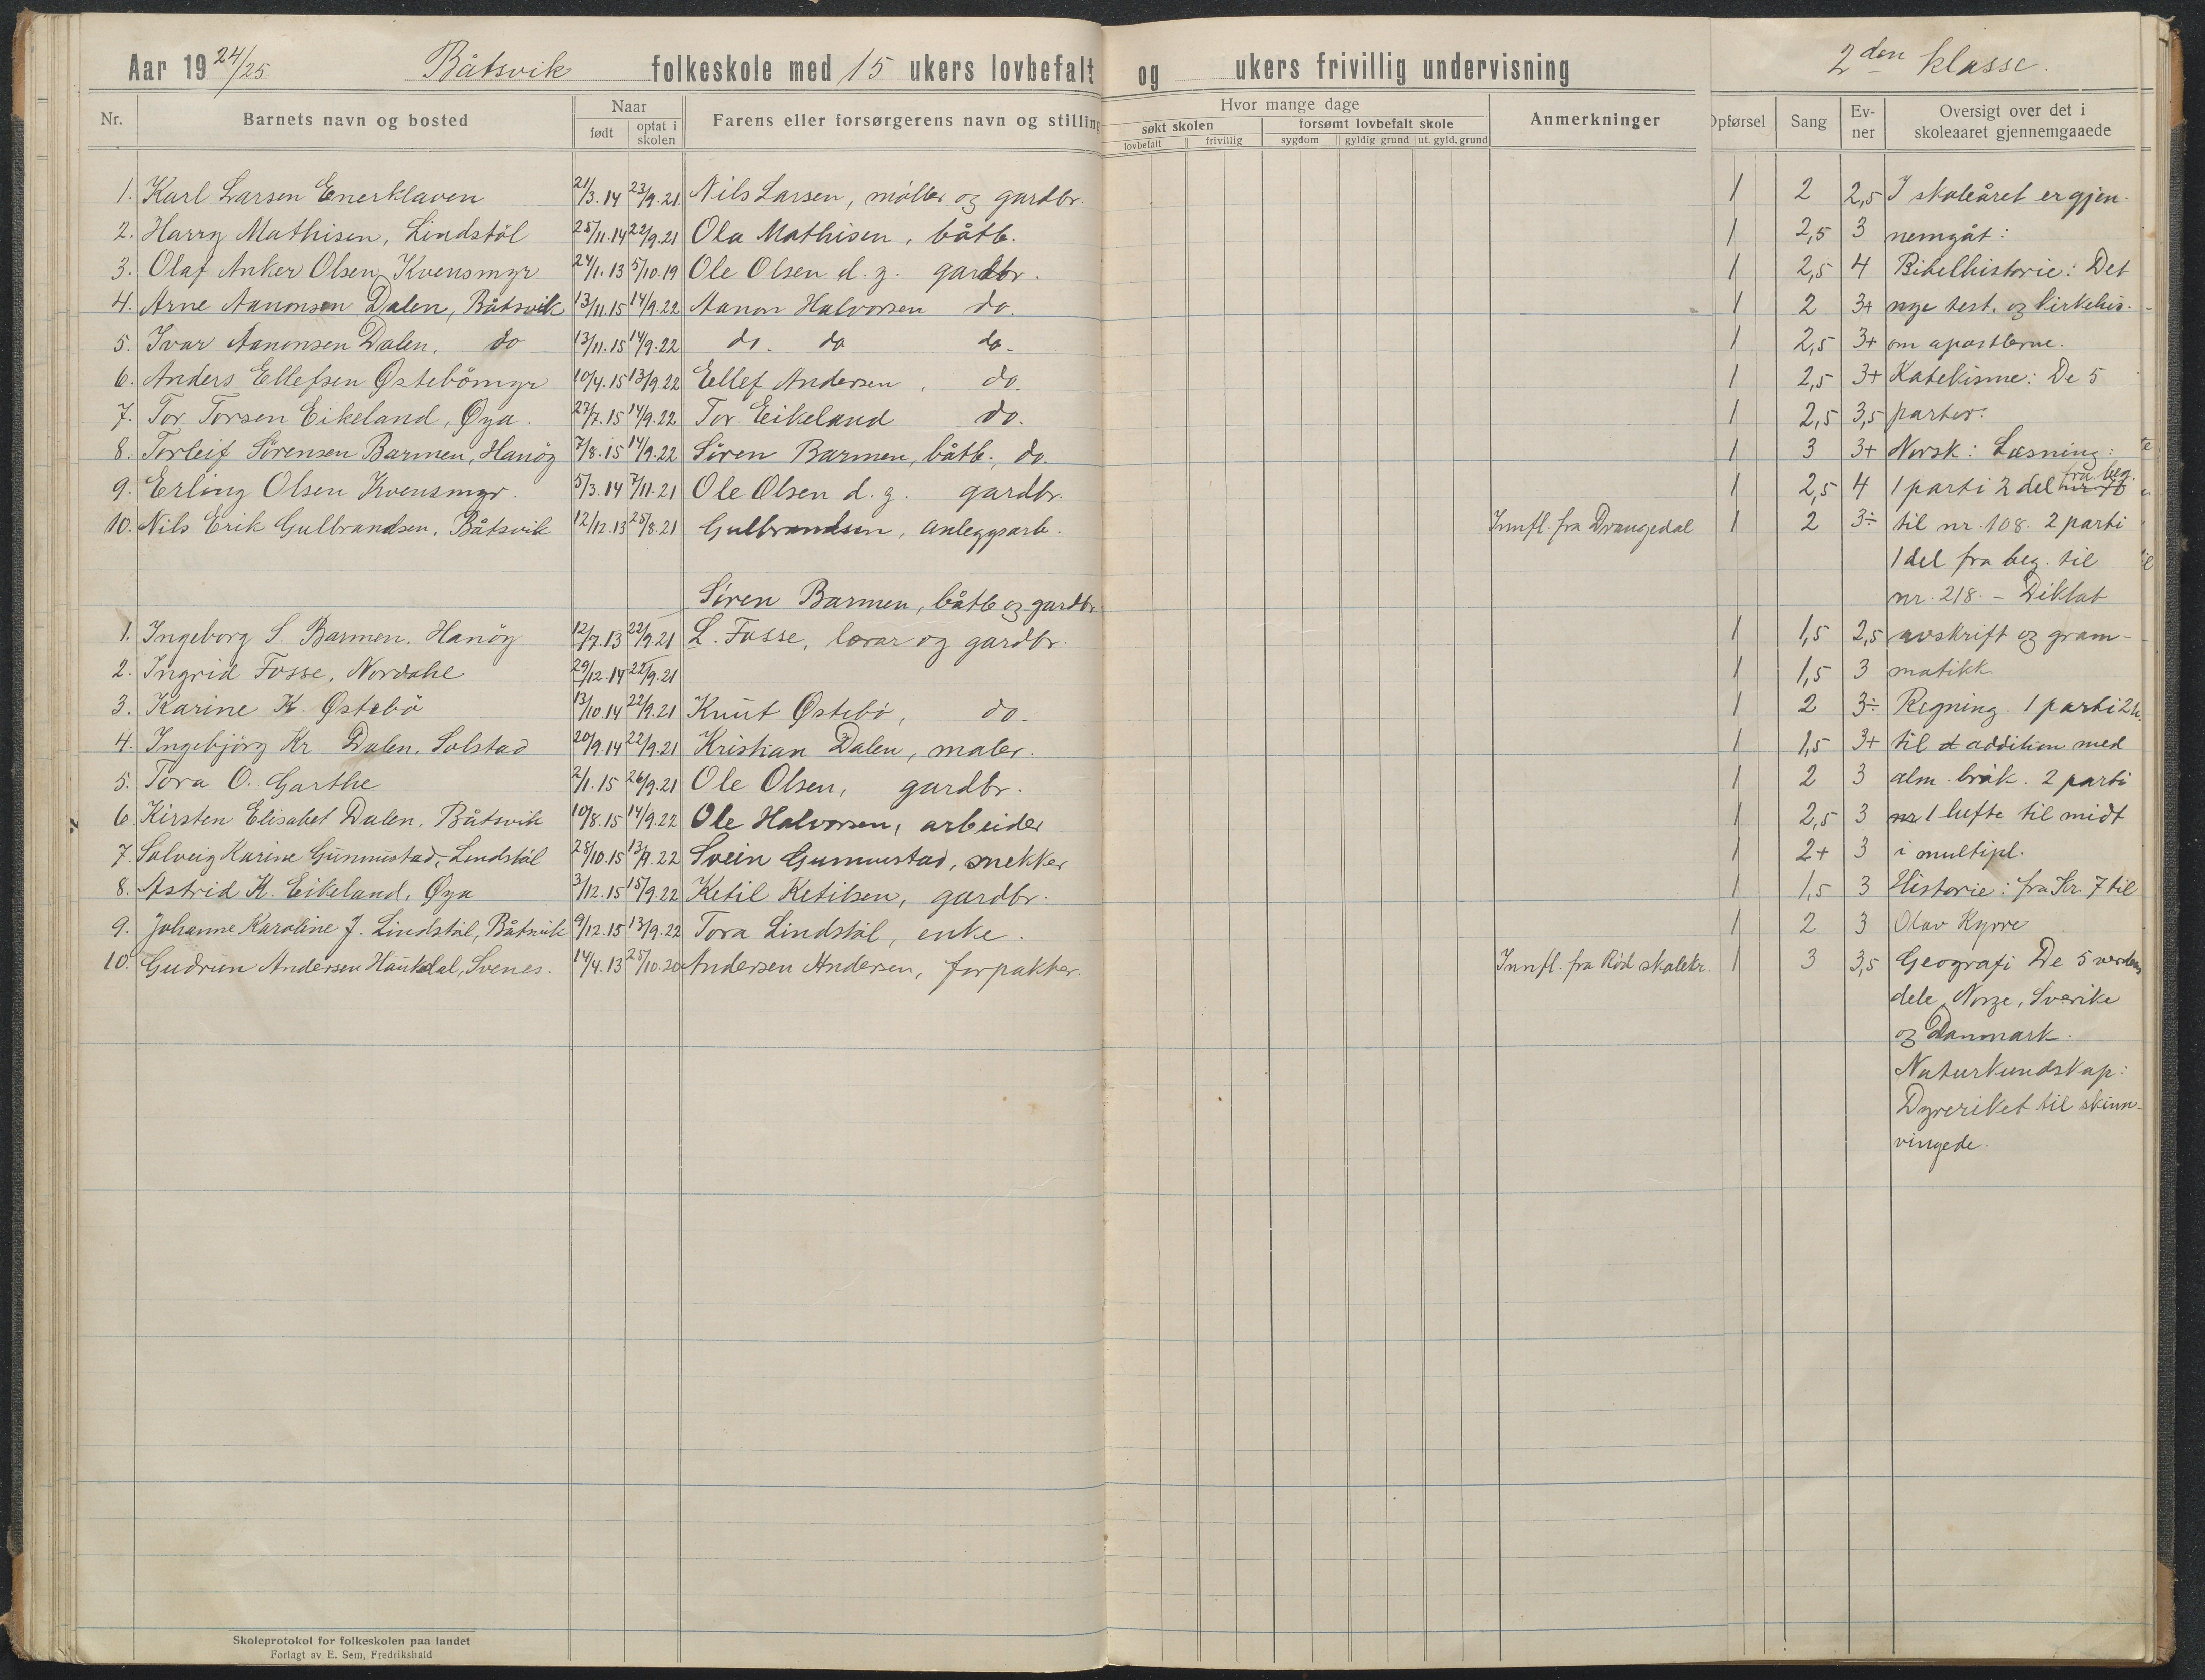 Aar 1924/25 Båtsvik folkeskole med 15 ukers lovbefalt og ukers frivillig undervisning 2den klasse.
Nr. Barnets navn og bosted Naar født optat i skolen Farens eller forsørgerens navn og stilling Hvor mange dage søkt skolen lovbefalt frivillig forsømt lovbefalt skole sygdom gyldig grund ut. gyld. grund Anmerkninger Opførsel Sang Evner Oversigt over det i skoleaaret gjennemgaaede
1. Karl Larsen Enerklaven 21/3.14 23/9.21 Nils Larsen, møller og gardbr. 1 2 2,5 I skoleåret er gjen-
2. Harry Mathisen, Lindstöl 25/11.14 22/9.21 Ola Mathisen, båtb. 1 2,5 3 nemgåt:
3. Olaf Anker Olsen, Kvensmyr 24/1.13 5/10.19 Ole Olsen d.y. gardbr. 1 2,5 4 Bibelhistorie: Det
4. Arne Aanonsen Dalen, Båtsvik 13/11.15 14/9.22 Aanon Halvorsen do. 1 2 3+ nye test. og kirkehis.
5. Ivar Aanonsen Dalen, do 13/11.15 14/9.22 do. do do. 1 2,5 3+ om apostlerne.
6. Anders Ellefsen Østebömyr 10/4.15 13/9.22 Eellef Andersen, do. 1 2,5 3+ Katekisme: De 5
7. Tor Torsen Eikeland, Øya. 27/7.15 14/9.22 Tor Eikeland do. 1 2,5 3,5 parter.
8. Torleif Sörensen Barmen, Hanöy 7/8.15 14/9.22 Sören Barmen, båtb., do. 1 3 3+ Norsk: Læsning:
9. Erling Olsen Kvensmyr. 5/3.14 7/11.21 Ole Olsen d.y. gardbr. 1 2,5 4 1 parti 2 del fra beg.
10. Nils Erik Gulbrandsen, Båtsvik 12/12.13 25/8.21 Gulbrandsen, anleggsarb. Innfl. fra Drangedal 1 2 3÷ til nr. 108. 2 parti
1 del fra beg. til
Sören Barmen, båtb og gardbr. nr. 218. – Diktat
1. Ingeborg S. Barmen, Hanöy 12/7.13 22/9.21 L. Fosse, lærar og gardbr. 1 1,5 2,5 avskrift og gram-
2. Ingrid Fosse, Nordahe 29/12.14 22/9.21 1 1,5 3 matikk
3. Karine K. Østebö 13/10.14 22/9.21 Knut Østebö, do. 1 2 3÷ Regning. 1 parti 2 h.
4. Ingebjörg Kr. Dalen, Solstad 20/9.14 22/9.21 Kristian Dalen, maler. 1 1,5 3+ til addition med
5. Tora O. Garthe 2/1.15 26/9.21 Ole Olsen, gardbr. 1 2 3 alm. bråk. 2 parti
6. Kirsten Elisabet Dalen, Båtsvik 10/8.15 14/9.22 Ole Halvorsen, arbeider 1 2,5 3 nr 1 hefte til midt
7. Solveig Karine Gunnustad, Lindstöl 28/10.15 13/9.22 Svein Gunnustad, snekker 1 2+ 3 i multipl.
8. Astrid K. Eikeland, Øya 3/12.15 15/9.22 Ketil Ketilsen, gardbr. 1 1,5 3 Historie: fra Kr. 7 til
9. Johanne Karoline J. Lindstöl, Båtsvik 9/12.15 13/9.22 Tora Lindstöl, enke. 1 2 3 Olav Kyrre
10. Gudrun Andersen Haukdal, Svenes. 14/4.13 25/10.20 Andersen Andersen, forpakter. Innfl. fra Rød skolekr. 1 3 3,5 Geografi De 5 verdens
dele, Norge, Sverike
og Danmark.
Naturkundskap:
Dyreriket til skinn-
vingede.
Skoleprotokol for folkeskolen paa landet
Forlagt av E. Sem, Fredrikshald